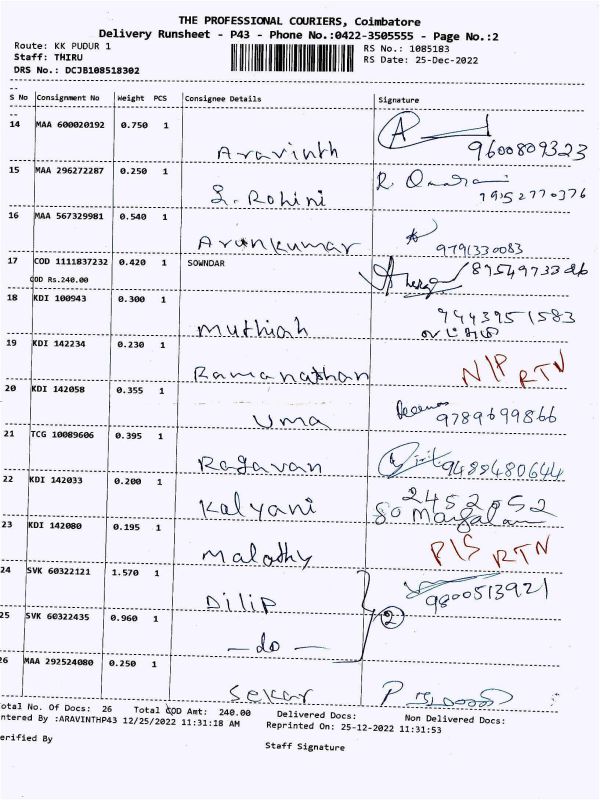 THE PROFESSIONAL COURIERS, Coimbatore
Delivery Runsheet - P43 - Phone No.:0422-3505555 - Page No.:2
Route: KK PUDUR 1
Staff: THIRU
DRS No.: DCJB108518302
RS No.: 1085183
RS Date: 25-Dec-2022
S No Consignment No Weight PCS Consignee Details Signature
14 MAA 600020192 0.750 1
Aravinth 9600809323
15 MAA 296272287 0.250 1
S. Rohini
16 MAA 567329981 0.540 1
Arunkumar 9791330083
17 COD 1111837232 0.420 1 SOWNDAR
COD Rs.240.00
18 KDI 100943 0.300 1
Muthiah 9443951583
19 KDI 142234 0.230 1
Ramanathan N/P RTN
20 KDI 142058 0.355 1
Uma 9789699866
21 TCG 10089606 0.395 1
Ragavan 9489480644
22 KDI 142033 0.200 1
Kalyani 2452052
23 KDI 142080 0.195 1
Malathy P/S RTN
24 SVK 60322121 1.570 1
Dilip 9800513921
25 SVK 60322435 0.960 1
- do - 2
26 MAA 292524080 0.250 1
Sekar
Total No. Of Docs: 26 Total COD Amt: 240.00 Delivered Docs: Non Delivered Docs:
Entered By :ARAVINTHP43 12/25/2022 11:31:18 AM Reprinted On: 25-12-2022 11:31:53
Verified By
Staff Signature